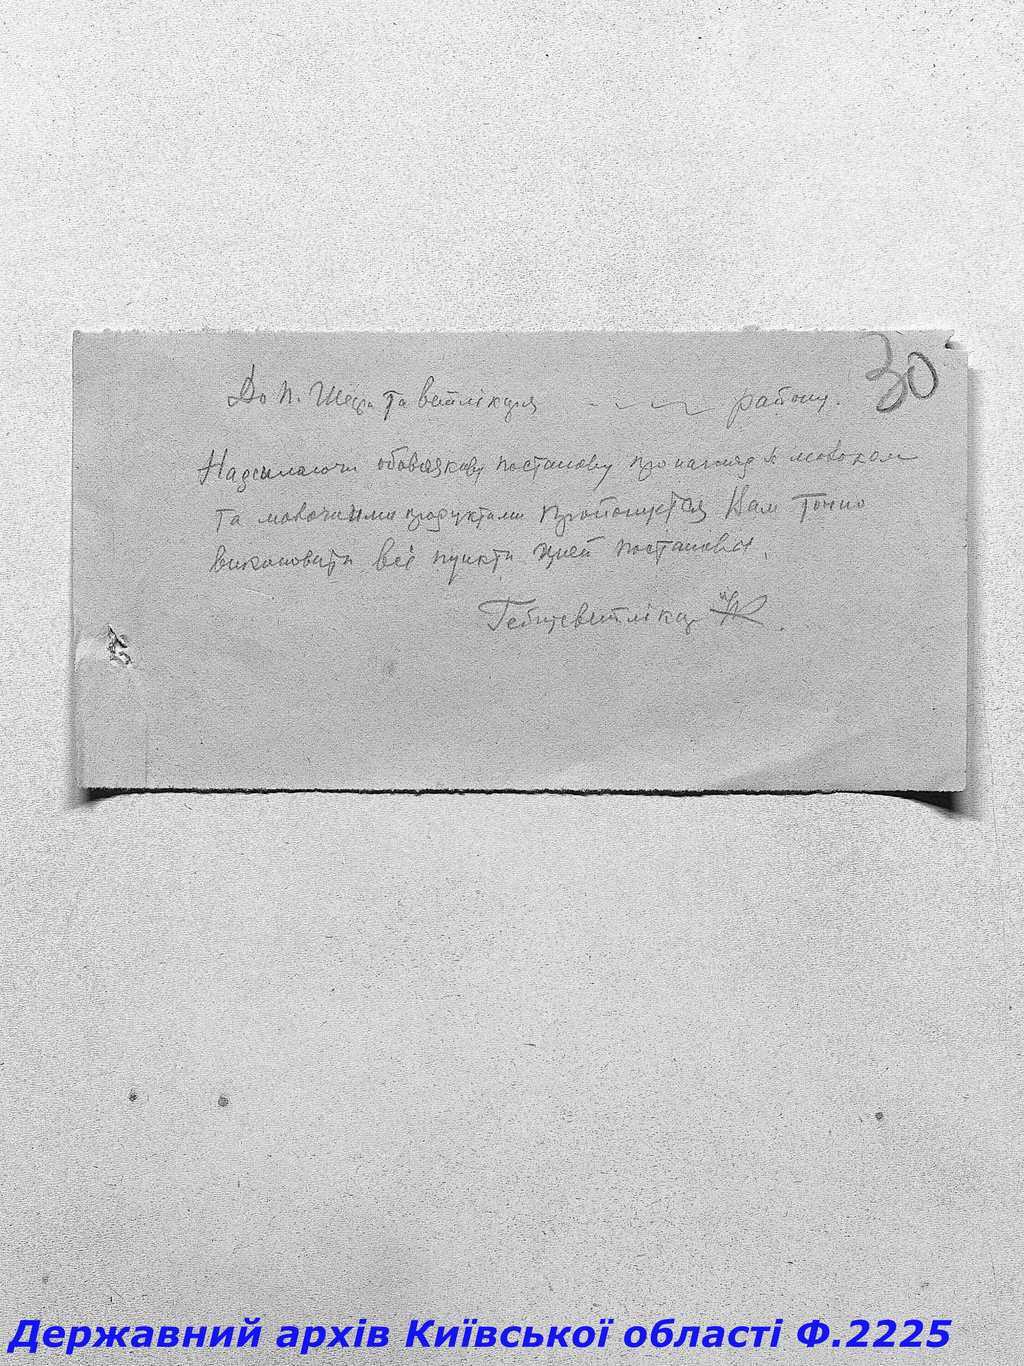 30
До п. Шефа та ветлікаря району.
Надсилаючи обов'язкову постанову про нагляд за молоком
та молочними продуктами пропонується Вам точно
виконовати всі пункти цієї постанови.
Гебітсветлікар
Державний архів Київської області Ф.2225